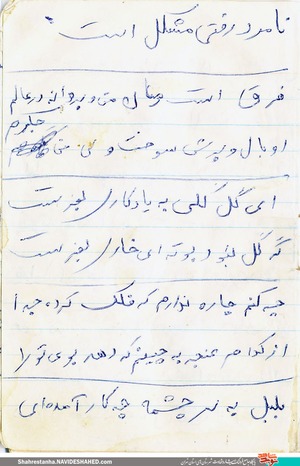 نامرد رفتی مشکل است
فرق است میان من و پروانه در عالم
او بال و پرش سوخت و من جگرم
ای گل گلی به یادگاری بفرست
گه گل نبود بوته ای خاری بفرست
چه کنم چاره ندارم که فلک کرده جدا
از کدام غنچه به چینم که دهد بوی تو را
بلبل به سر چشمه چه کار آمده‌ای
Shahrestanha.NAVIDESHAHED.com